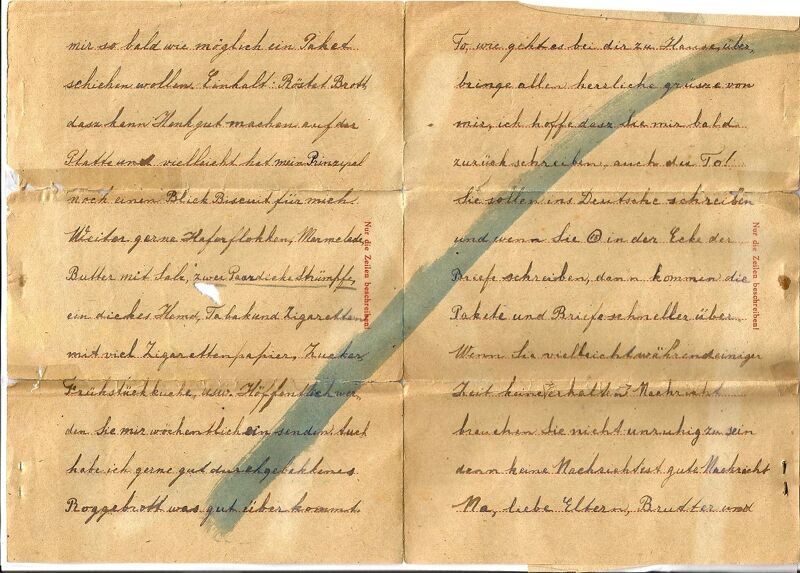 mir so bald wie möglich ein Paket
schicken wollen. Einhalt: Röstet Brott
dasz kann Henk gut machen auf der
Platte und vielleicht hat mein Prinzipal
noch einen Blick Biscuit für mich.
Weiter gerne Haferflokken, Marmelade,
Butter mit Salz, zwei Paar dicke Strümpfe,
ein dickes Hemd, Tabak und Zigaretten
mit viel Zigarettenpapier, Zucker
Frühstückkuche, usw. Höffentlich wer,
den Sie mir wochentlich ein senden. Auch
habe ich gerne gut durchgebekkenes
Roggebrott was gut über kommt.
Nur die Zeilen beschreiben!
To, wie geht es bei dir zu Hause, über,
bringe allen herzliche grüsze von
mir, ich hoffe dasz Sie mir bald
zurück schreiben, auch du To!
Sie sollen ins Deutsche schreiben
und wenn Sie in der Ecke der
Briefe schreiben, dann kommen die
Pakete und Briefe schneller über.
Wenn Sie vielleicht während einiger
Zeit keine Nachricht
brauchen Sie nicht unruhig zu sein
denn keine Nachricht est gute Nachricht
Na, liebe Eltern, Brudter und
Nur die Zeilen beschreiben!